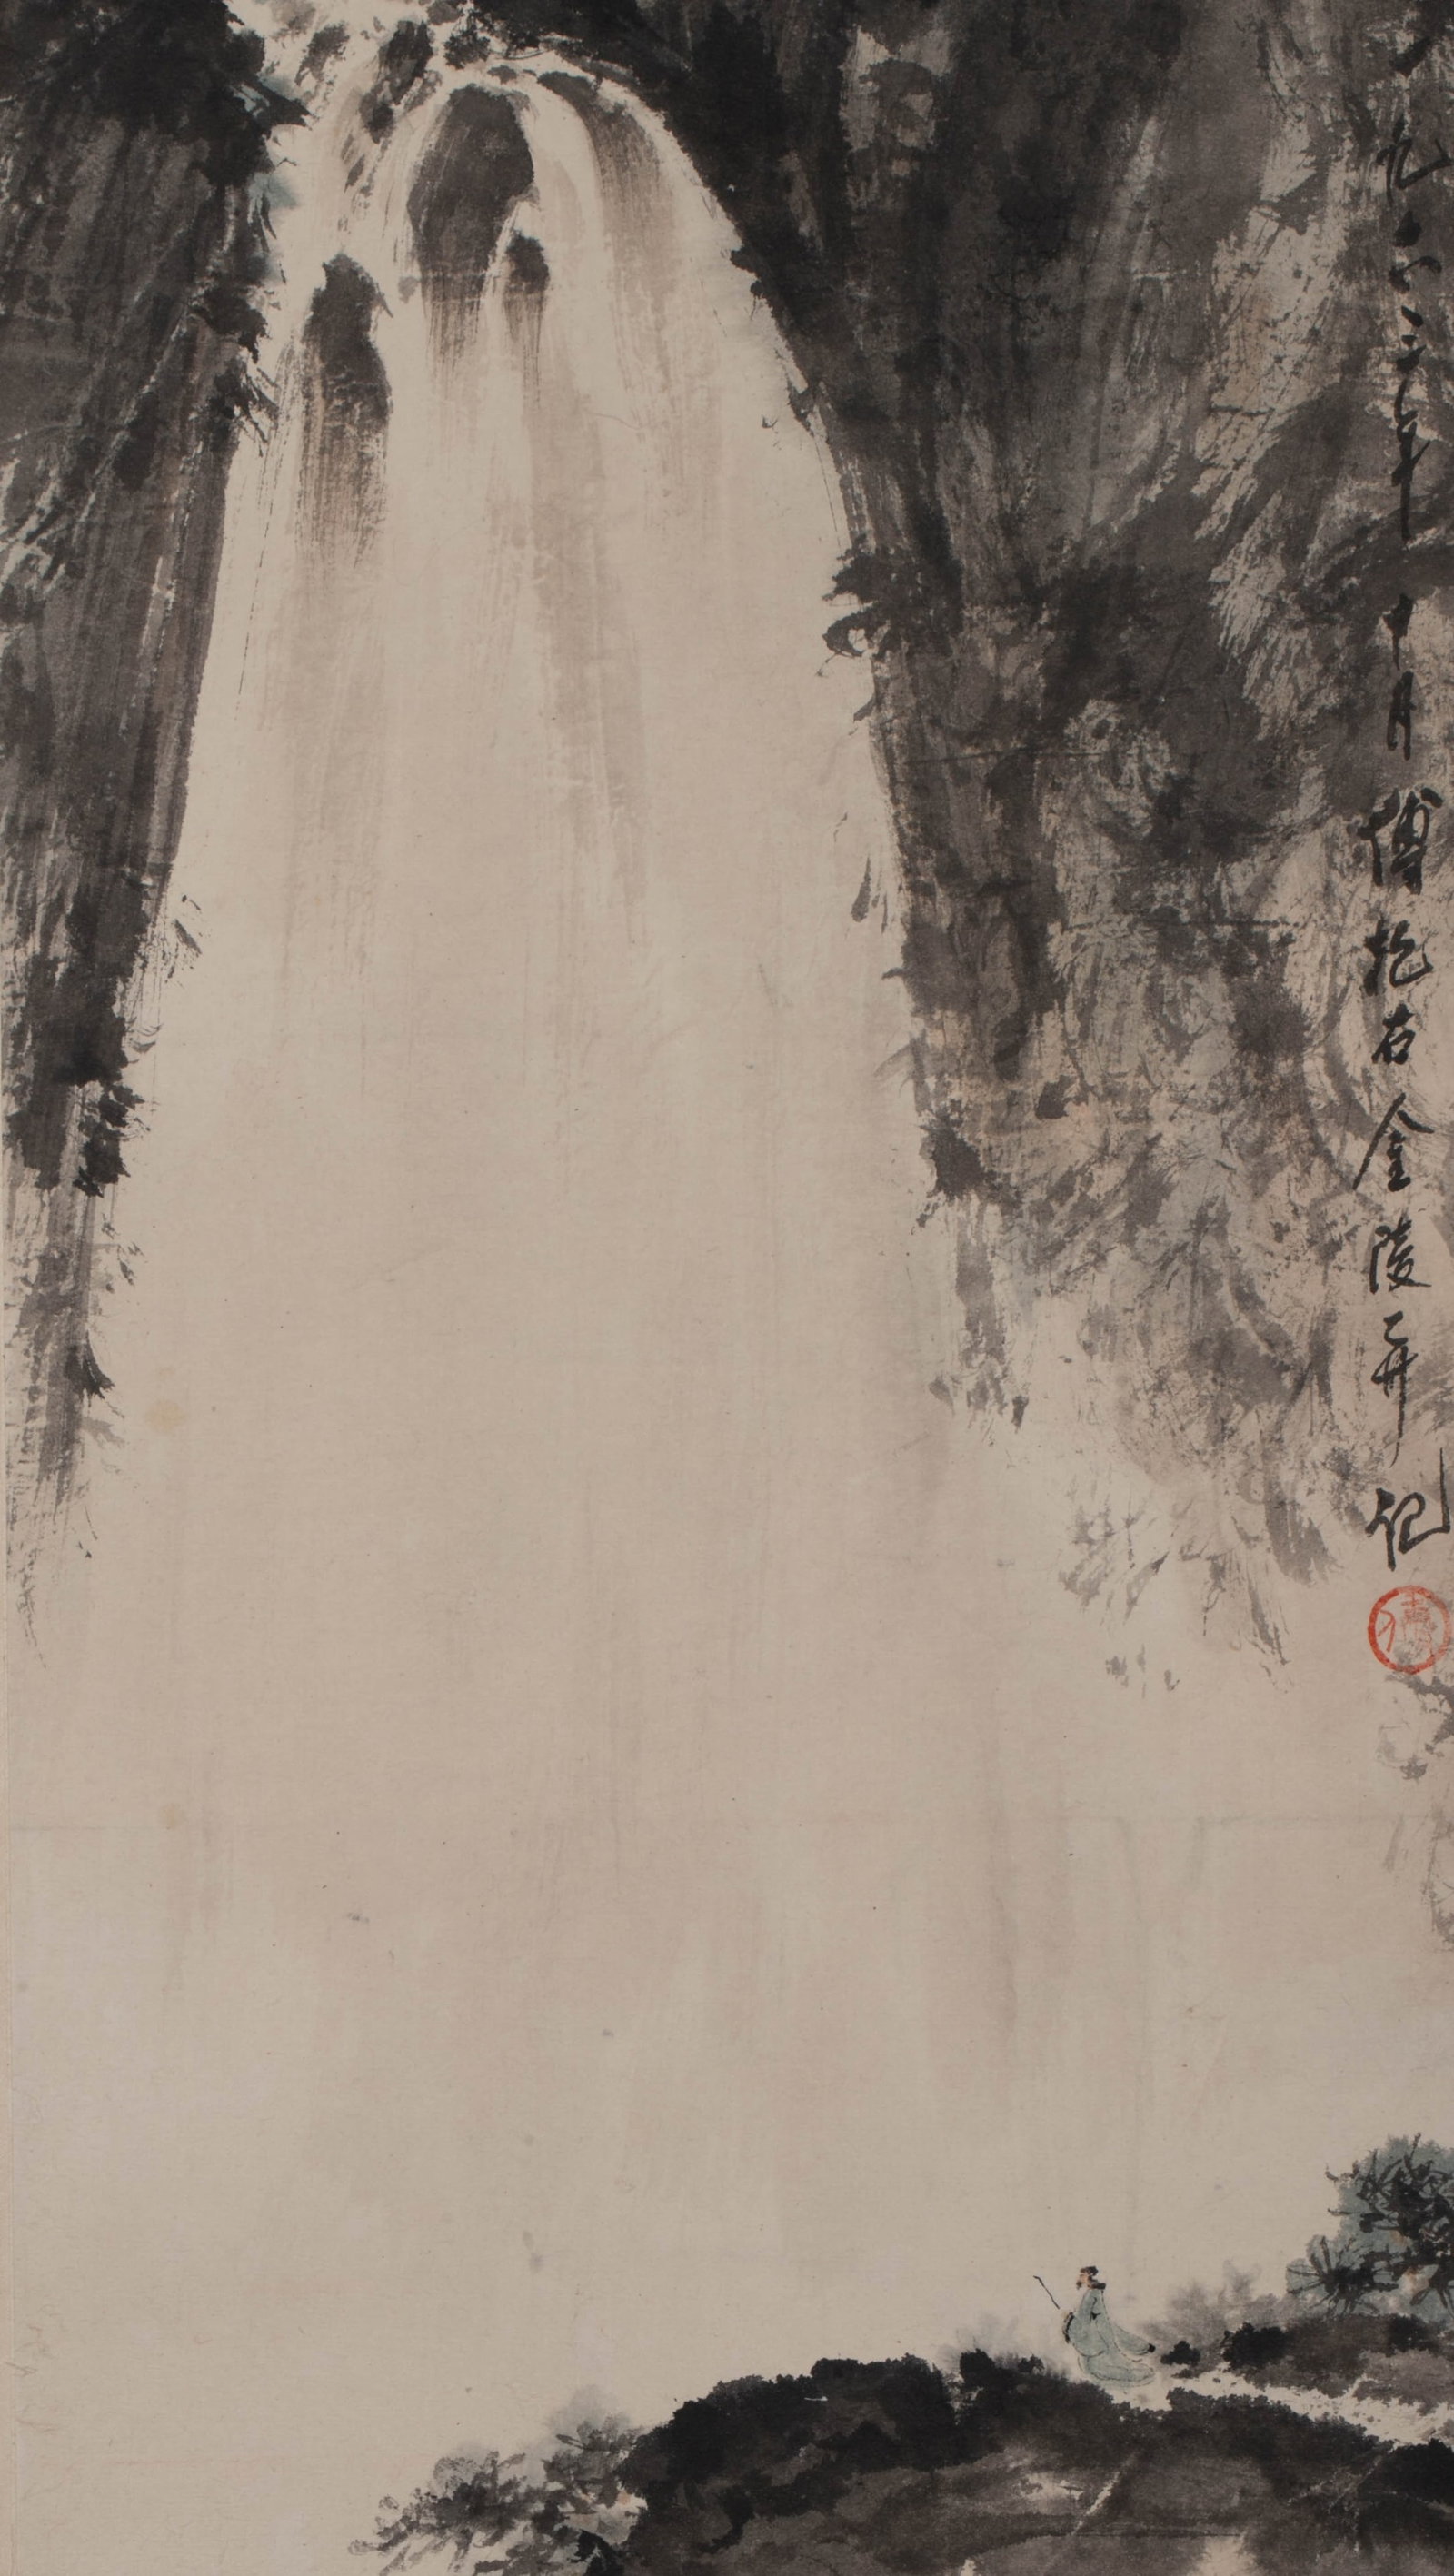 一九六三年十月傅抱石金陵并记
傅